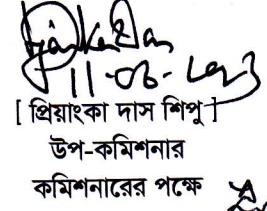 11-06-2023
[ প্রিয়াংকা দাস শিপু ]
উপ-কমিশনার
কমিশনারের পক্ষে